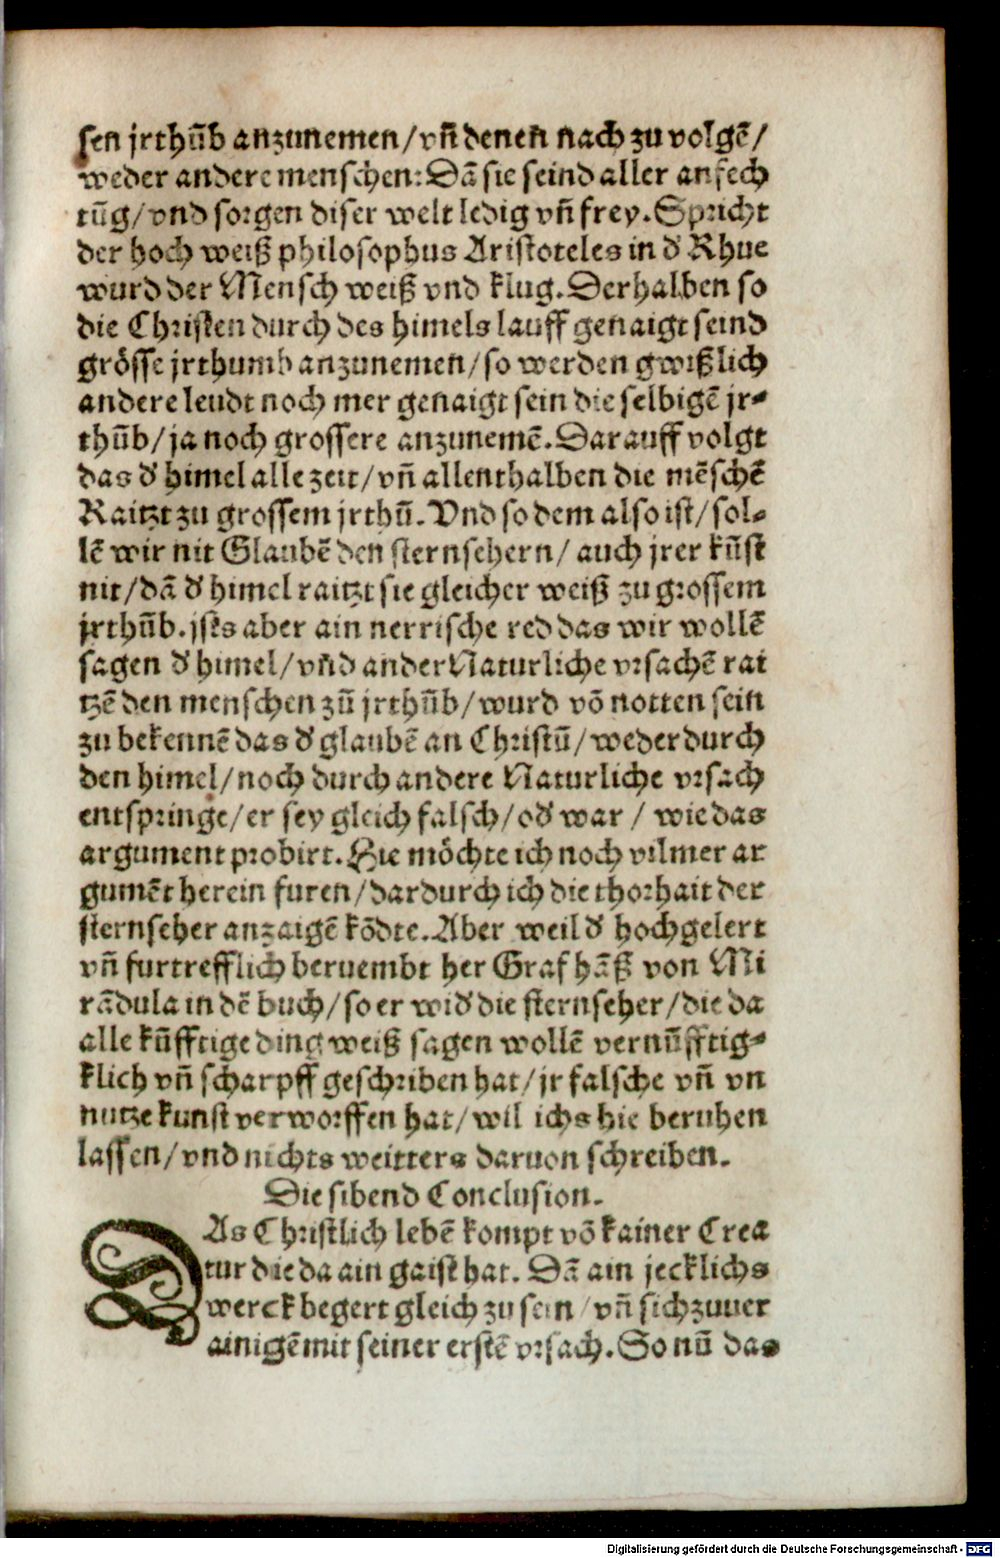 sen jrthūb anzunemen/ vn̄ denen nach zu volgē/
weder andere menschen: Dā sie seind aller anfech
tūg/ vnd sorgen diser welt ledig vn̄ frey. Spricht
der hoch weiß philosophus Aristoteles in d' Rhue
wurd der Mensch weiß vnd klug. Derhalben so
die Christen durch des himels lauff genaigt seind
grösse jrthumb anzunemen/ so werden gwißlich
andere leudt noch mer genaigt sein die selbigē jr⸗
thūb/ ja noch grossere anzunemē. Darauff volgt
das d' himel alle zeit/ vn̄ allenthalben die mēschē
Raitzt zu grossem jrthū. Vnd so dem also ist/ sol⸗
lē wir nit Glaubē den sternsehern/ auch jrer kūst
nit/ dā d' himel raitzt sie gleicher weiß zu grossem
jrthūb. jsts aber ain nerrische red das wir wollē
sagen d' himel/ vn̄d ander Naturliche vrsachē rai
tzē den menschen zū jrthūb/ wurd vō notten sein
zu bekennē das d' glaubē an Christū/ weder durch
den himel/ noch durch andere Naturliche vrsach
entspringe/ er sey gleich falsch/ od' war / wie das
argument probirt. Hie möchte ich noch vilmer ar
gumēt herein furen/ dardurch ich die thorhait der
sternseher anzaigē kōdte. Aber weil d' hochgelert
vn̄ furtrefflich beruembt her Graf hāß von Mi
rādula in dē buch/ so er wid' die sternseher/ die da
alle kūfftige ding weiß sagen wollē vernūfftig⸗
klich vn̄ scharpff geschriben hat/ jr falsche vn̄ vn
nutze kunst verworffen hat/ wil ichs hie beruhen
lassen/ vnd nichts weitters daruon schreiben.
Die sibend Conclusion.
DAs Christlich lebē kompt vō kainer Crea
tur die da ain gaist hat. Dā ain jecklichs
werck begert gleich zu sein / vn̄ sich zuuer
ainigē mit seiner erstē vrsach. So nū das
Digitalisierung gefördert durch die Deutsche Forschungsgemeinschaft - DFG